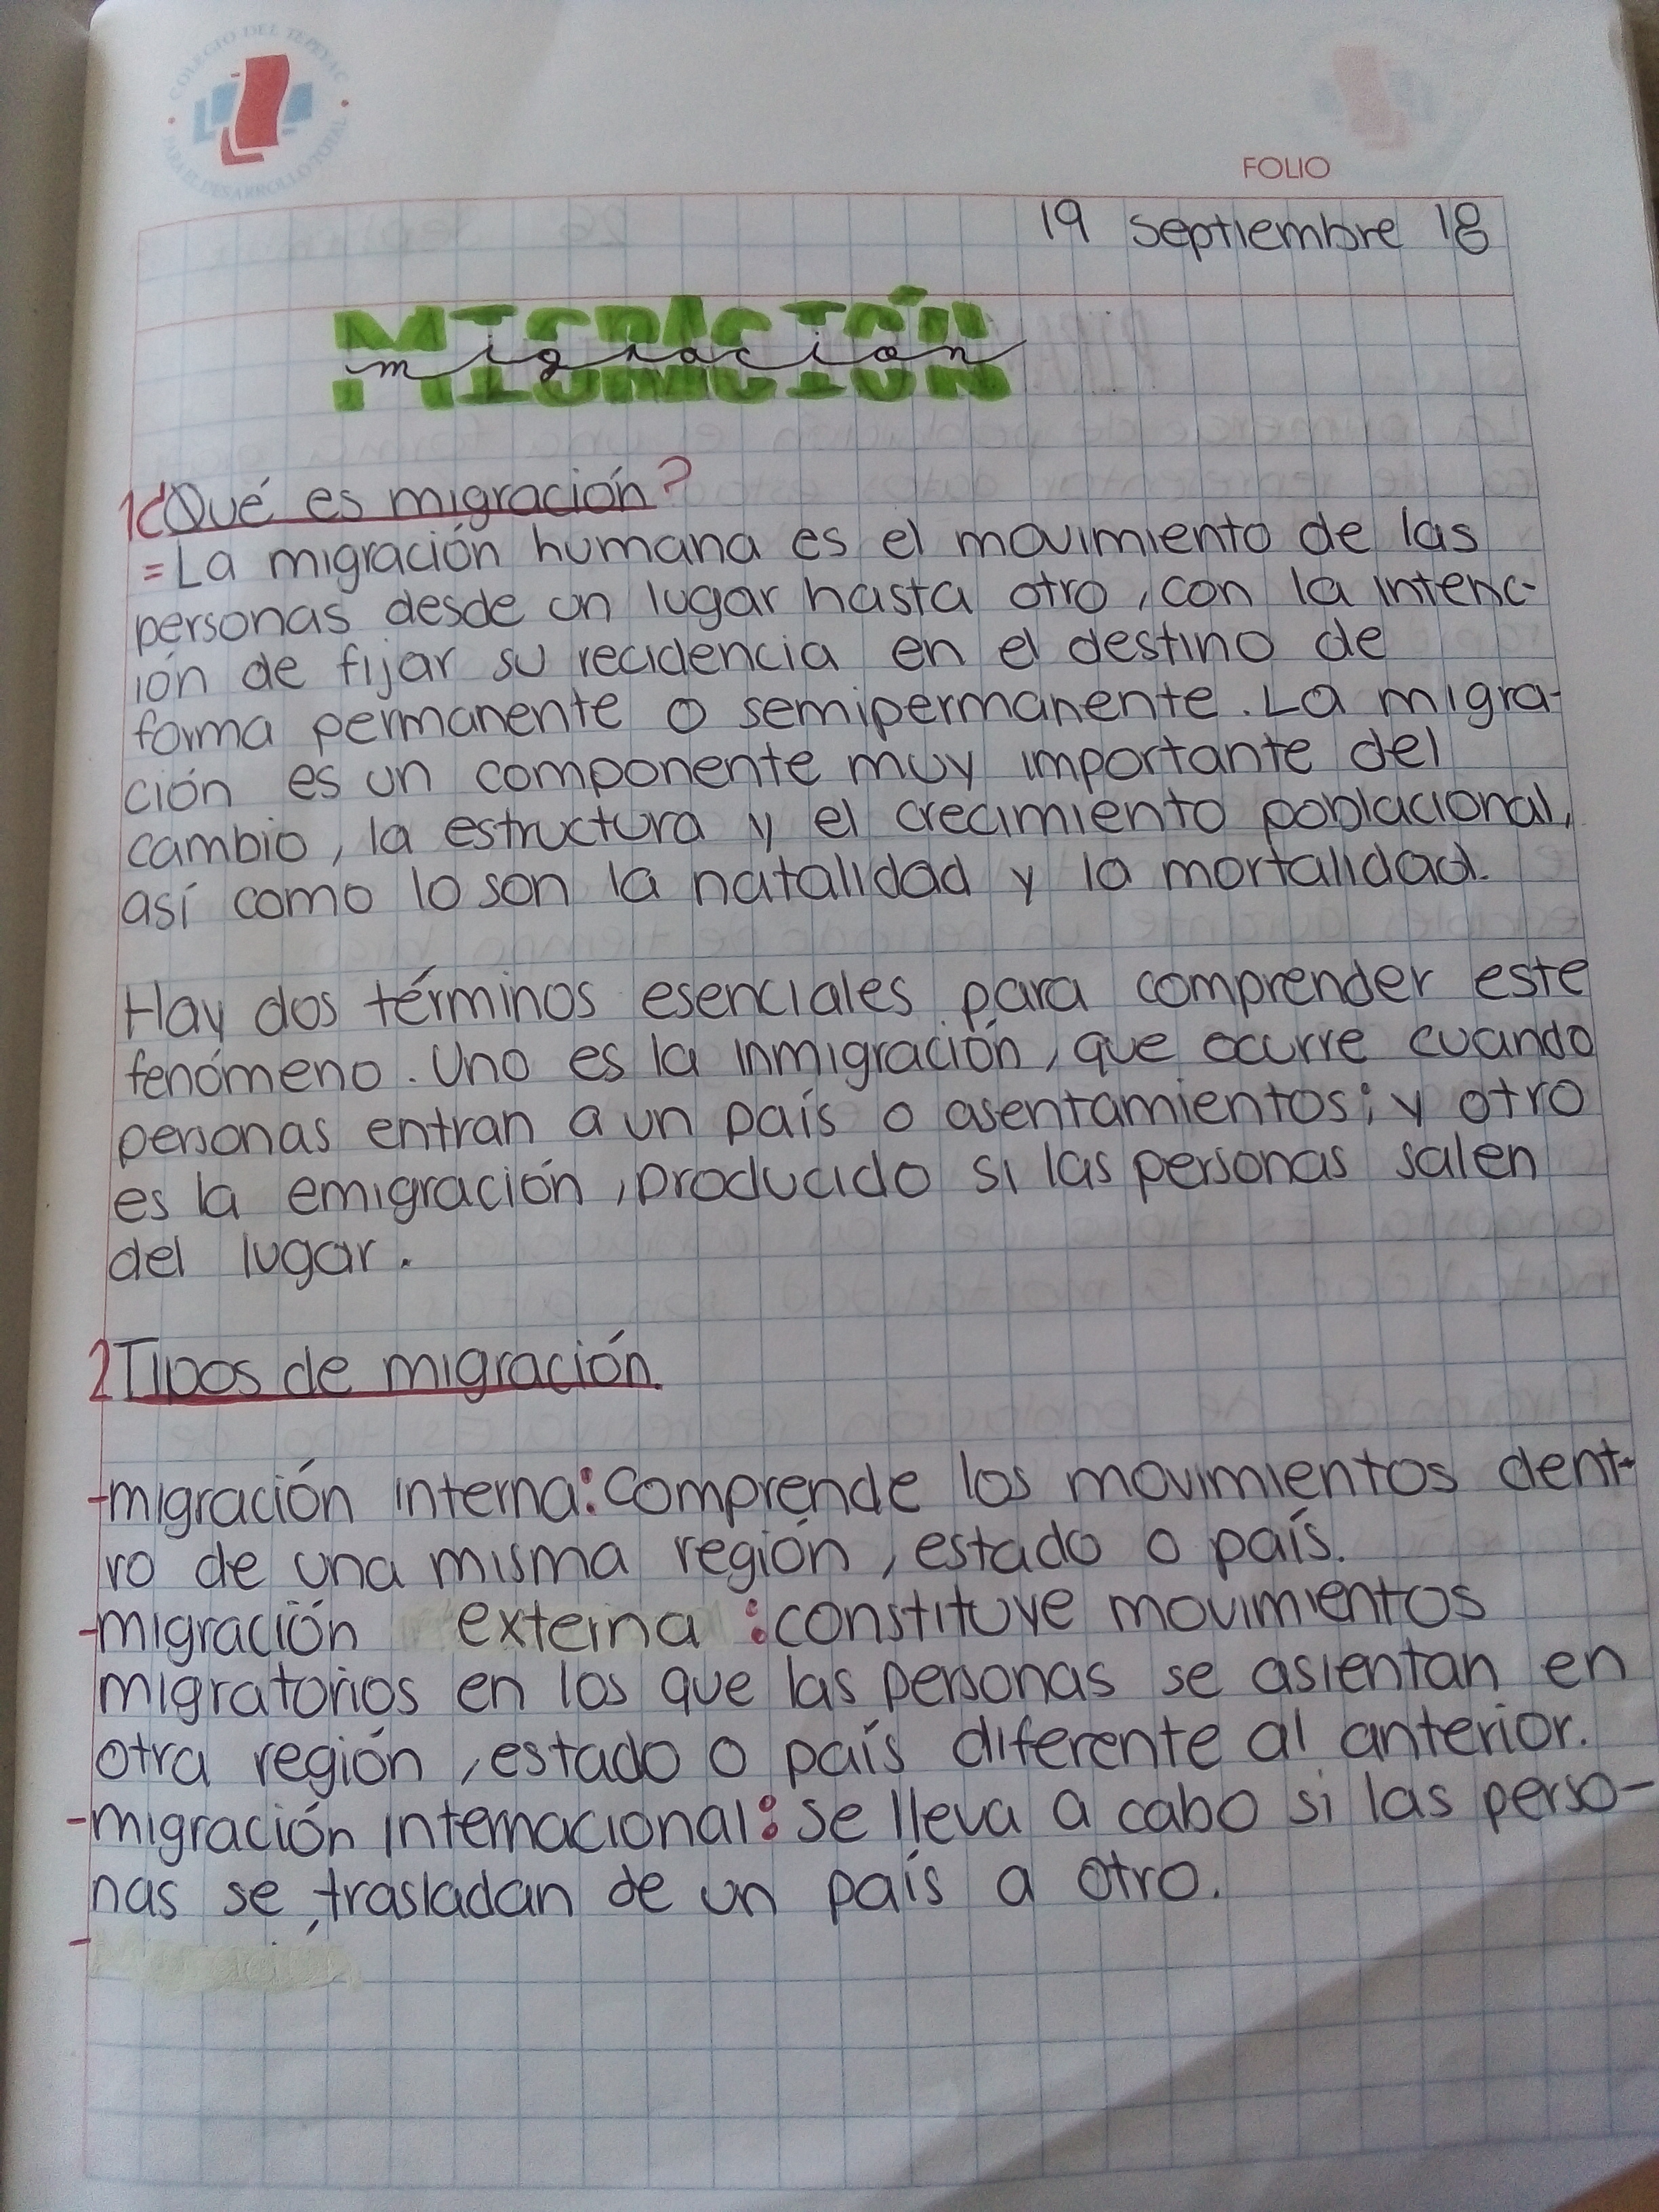 COLEGIO DEL TEPEYAC
PARA EL DESARROLLO TOTAL
FOLIO
19 septiembre 18
MIGRACIÓN
migración
1¿Qué es migración?
=La migración humana es el movimiento de las
personas desde un lugar hasta otro, con la intenc-
ión de fijar su recidencia en el destino de
forma permanente o semipermanente. La migra-
ción es un componente muy importante del
cambio, la estructura y el crecimiento poblacional,
así como lo son la natalidad y la mortalidad.
Hay dos términos esenciales para comprender este
fenómeno. Uno es la inmigración, que ocurre cuando
personas entran a un país o asentamientos; y otro
es la emigración, producido si las personas salen
del lugar.
2 Tipos de migración.
-migración interna: Comprende los movimientos dent-
ro de una misma región, estado o país.
-migración externa: constituye movimientos
migratorios en los que las personas se asientan en
otra región, estado o país diferente al anterior.
-migración internacional: se lleva a cabo si las perso-
nas se trasladan de un país a otro.
-